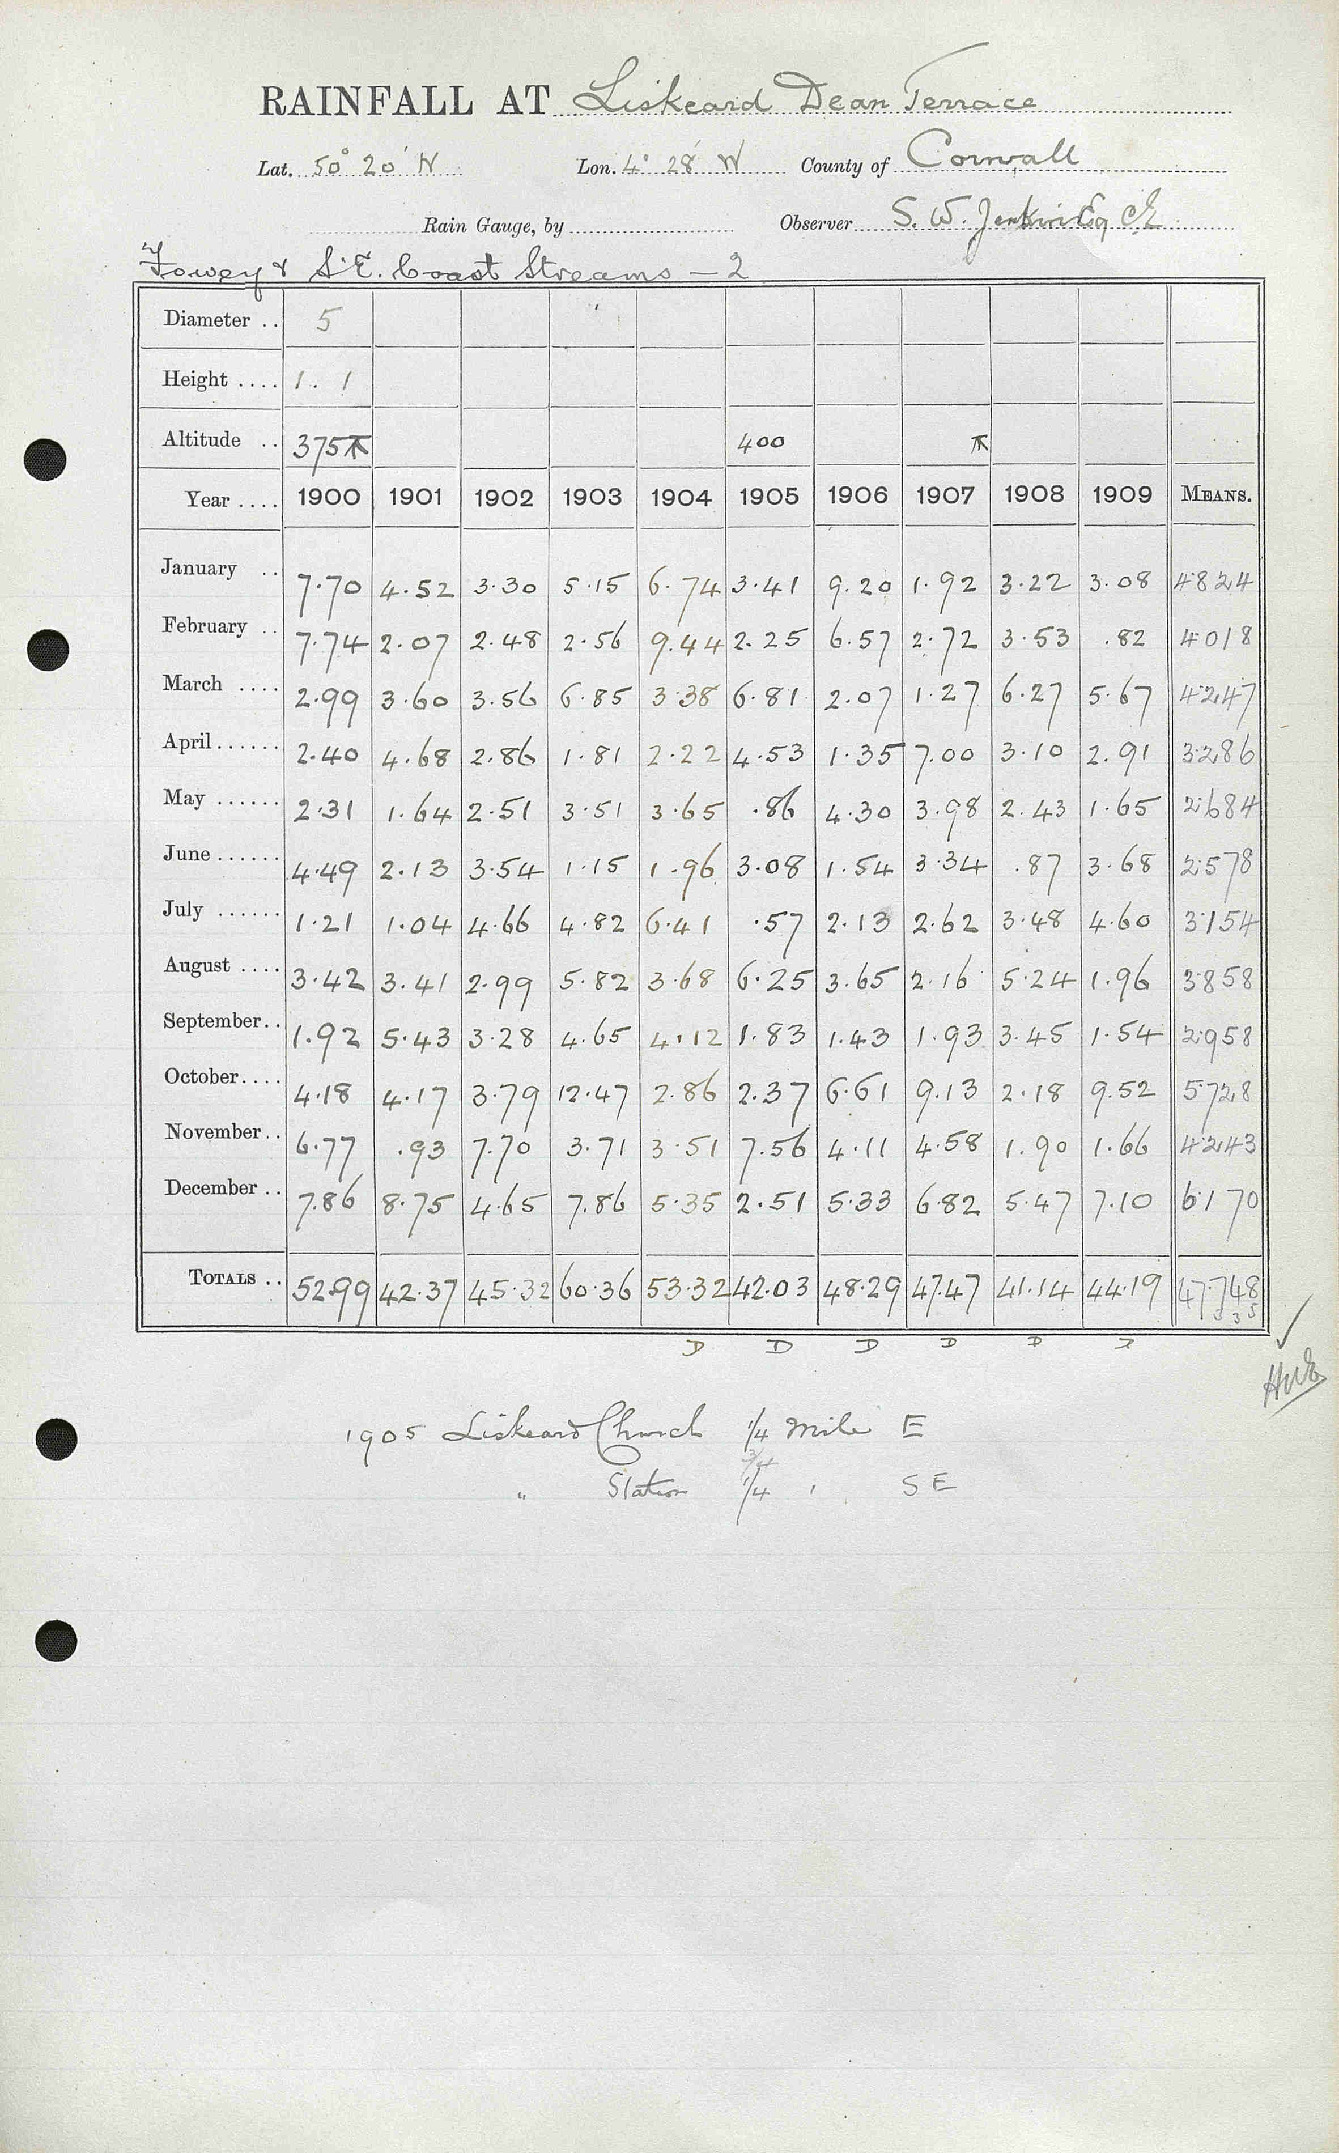 RAINFALL AT Liskeard Dean Terrace
Lat. 50° 20' N Lon. 4° 28' W County of Cornwall
Rain Gauge, by Observer S. W. Jenkin Esq CE
Fowey & S.E. Coast Streams — 2
Diameter .. 5
Height .... 1. 1
Altitude .. 375 400
Year .... 1900 1901 1902 1903 1904 1905 1906 1907 1908 1909 MEANS.
January .. 7.70 4.52 3.30 5.15 6.74 3.41 9.20 1.92 3.22 3.08 4.824
February .. 7.74 2.07 2.48 2.56 9.44 2.25 6.57 2.72 3.53 .82 4.018
March .... 2.99 3.60 3.56 6.85 3.38 6.81 2.07 1.27 6.27 5.67 4.247
April ...... 2.40 4.68 2.86 1.81 2.22 4.53 1.35 7.00 3.10 2.91 3.286
May ...... 2.31 1.64 2.51 3.51 3.65 .86 4.30 3.98 2.43 1.65 2.684
June ...... 4.49 2.13 3.54 1.15 1.96 3.08 1.54 3.34 .87 3.68 2.578
July ...... 1.21 1.04 4.66 4.82 6.41 .57 2.13 2.62 3.48 4.60 3.154
August .... 3.42 3.41 2.99 5.82 3.68 6.25 3.65 2.16 5.24 1.96 3.858
September .. 1.92 5.43 3.28 4.65 4.12 1.83 1.43 1.93 3.45 1.54 2.958
October .... 4.18 4.17 3.79 12.47 2.86 2.37 6.61 9.13 2.18 9.52 5.728
November .. 6.77 .93 7.70 3.71 3.51 7.56 4.11 4.58 1.90 1.66 4.243
December .. 7.86 8.75 4.65 7.86 5.35 2.51 5.33 6.82 5.47 7.10 6.170
TOTALS .. 52.99 42.37 45.32 60.36 53.32 42.03 48.29 47.47 41.14 44.19 47.748
3 3 5
D D D D D D
1905 Liskeard Church 1/4 mile E
3/4
" Station 1/4 " SE